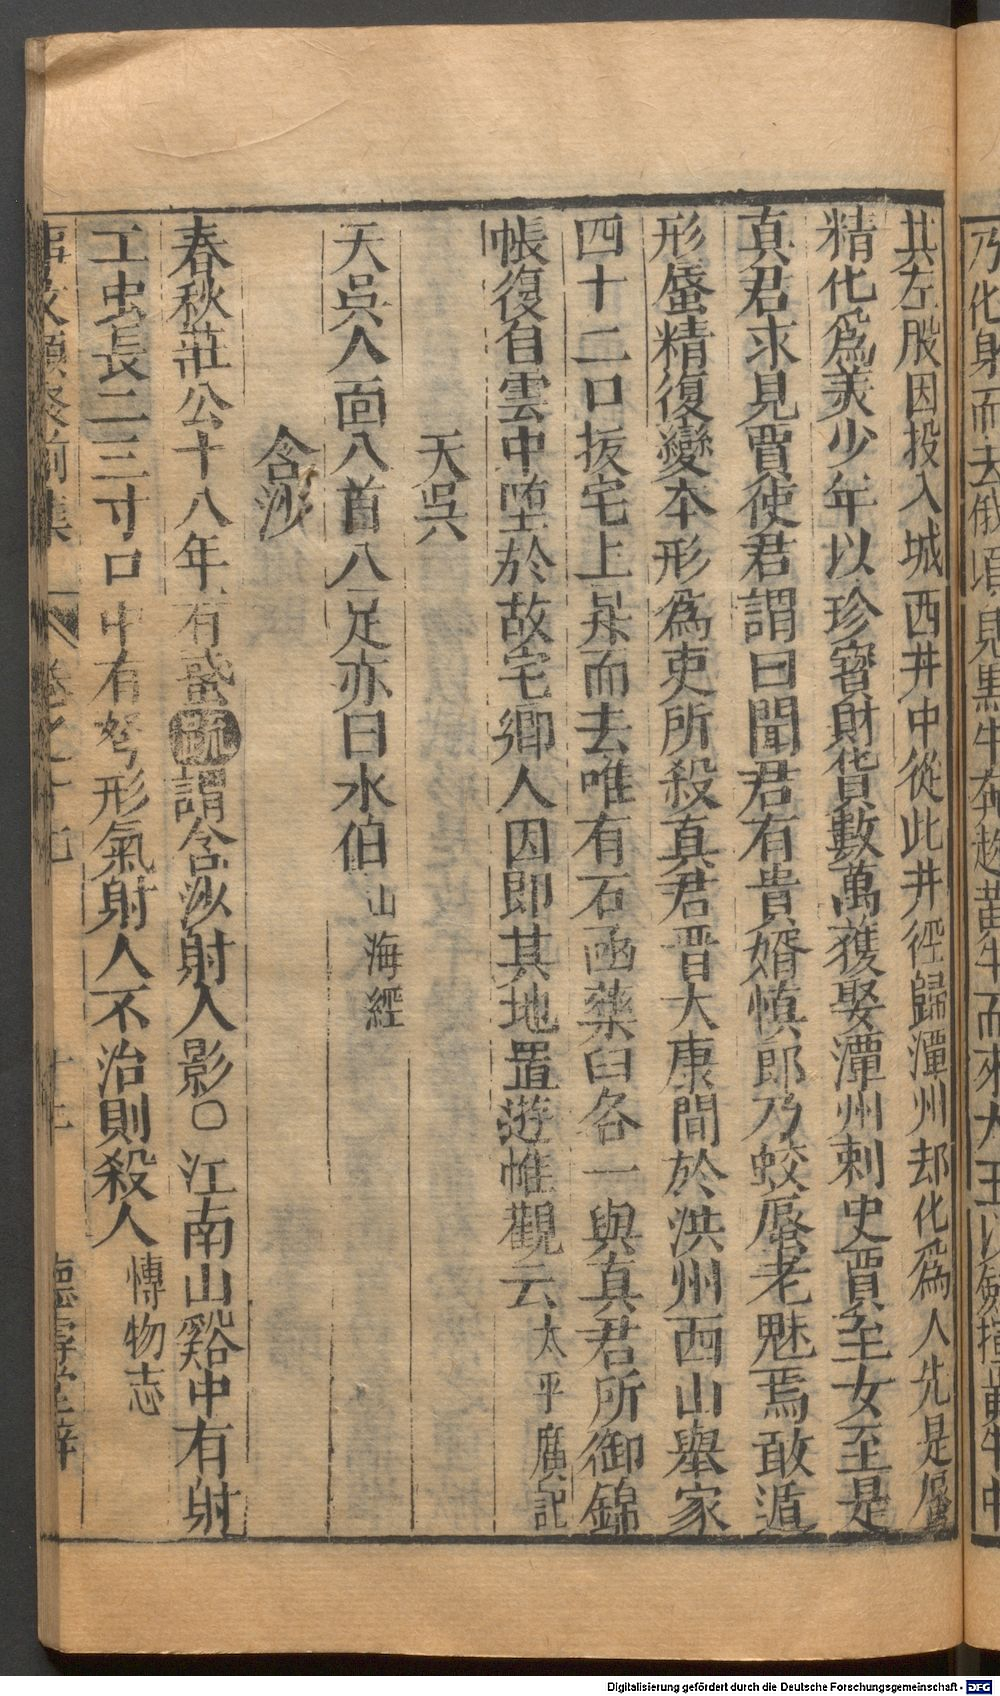 乃化身而去俄頃見黑牛奔趂黃牛而來大王以劒揮黃牛中
其左股因投入城西井中從此井徑歸潭州却化爲人先是蜃
精化爲美少年以珍寳財貨數萬獲娶潭州剌史賈至女至是
真君求見賈使君謂曰聞君有貴婿慎郎乃蛟蜃老魅焉敢遁
形蜃精復變本形爲吏所殺真君晋大康間於洪州西山舉家
四十二口抜宅上昇而去唯有石函藥臼各一與真君所御錦
帳復自雲中堕於故宅鄊人因即其地置遊帷觀云太平廣記
天吳
天吳人面八首八足亦曰水伯山海經
含沙
春秋莊公十八年有蜮疏謂含沙射人影○江南山谿中有射
工虫長二三寸口中有弩形氣射人不治則殺人博物志
事文類聚前集 卷之十九 德壽堂梓
Digitalisierung gefördert durch die Deutsche Forschungsgemeinschaft - DFG